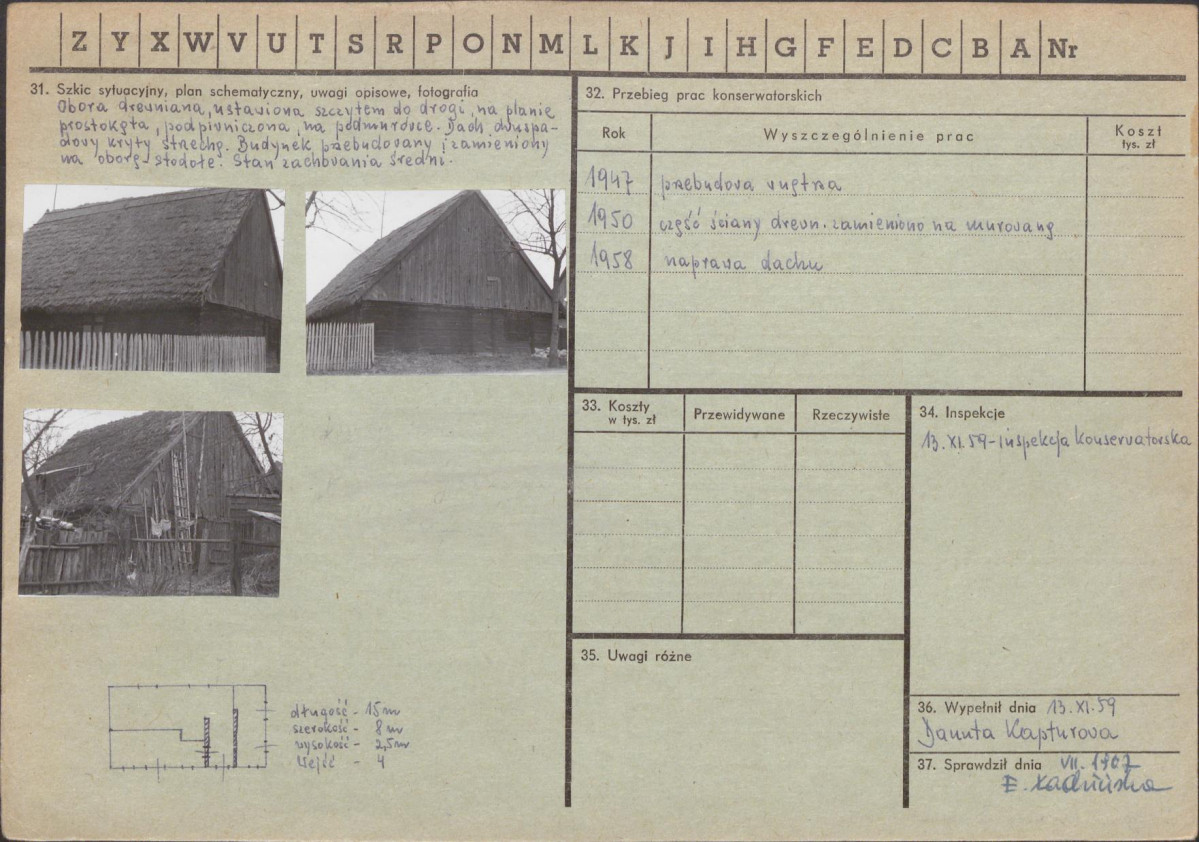 Z Y X W V U T S R P O N M L K J I H G F E D C B A Nr
31. Szkic sytuacyjny, plan schematyczny, uwagi opisowe, fotografia
Obora drewniana, ustawiona szczytem do drogi, na planie
prostokąta, podpiwniczona, na podmurówce. Dach dwuspa-
dowy kryty strzechą. Budynek przebudowany i zamieniony
na oborę-stodołę. Stan zachowania średni.
długość - 15 m
szerokość - 8 m
wysokość - 2,5 m
Wejść - 4
32. Przebieg prac konserwatorskich
Rok Wyszczególnienie prac Koszt
tys. zł
1947 przebudowa wnętrza
1950 część ściany drewn. zamieniono na murowaną
1958 naprawa dachu
33. Koszty
w tys. zł
Przewidywane Rzeczywiste
34. Inspekcje
13.XI.59 - inspekcja konserwatorska
35. Uwagi różne
36. Wypełnił dnia 13.XI.59
Danuta Kapturowa
37. Sprawdził dnia VII.
E.